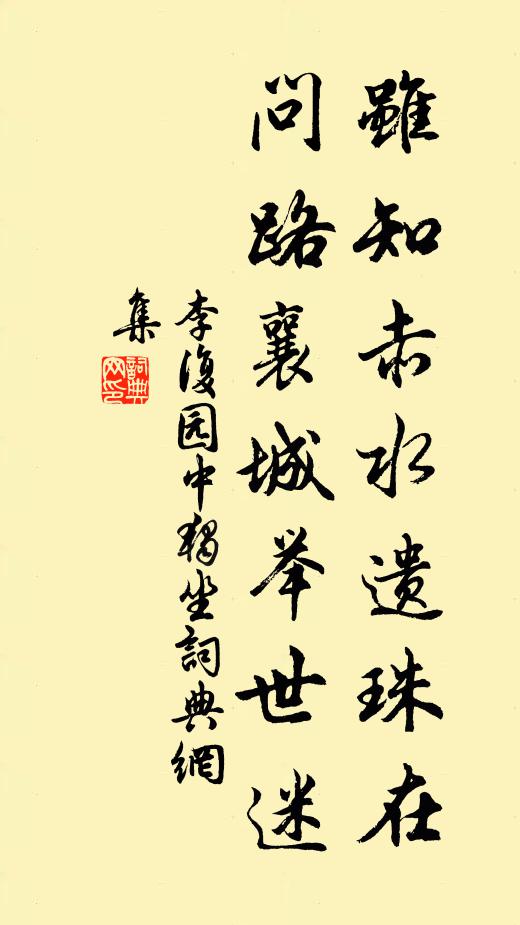 雖知赤水遗珠在
問路襄城举世迷
李復园中獨坐詞典網
集
詞典
网印